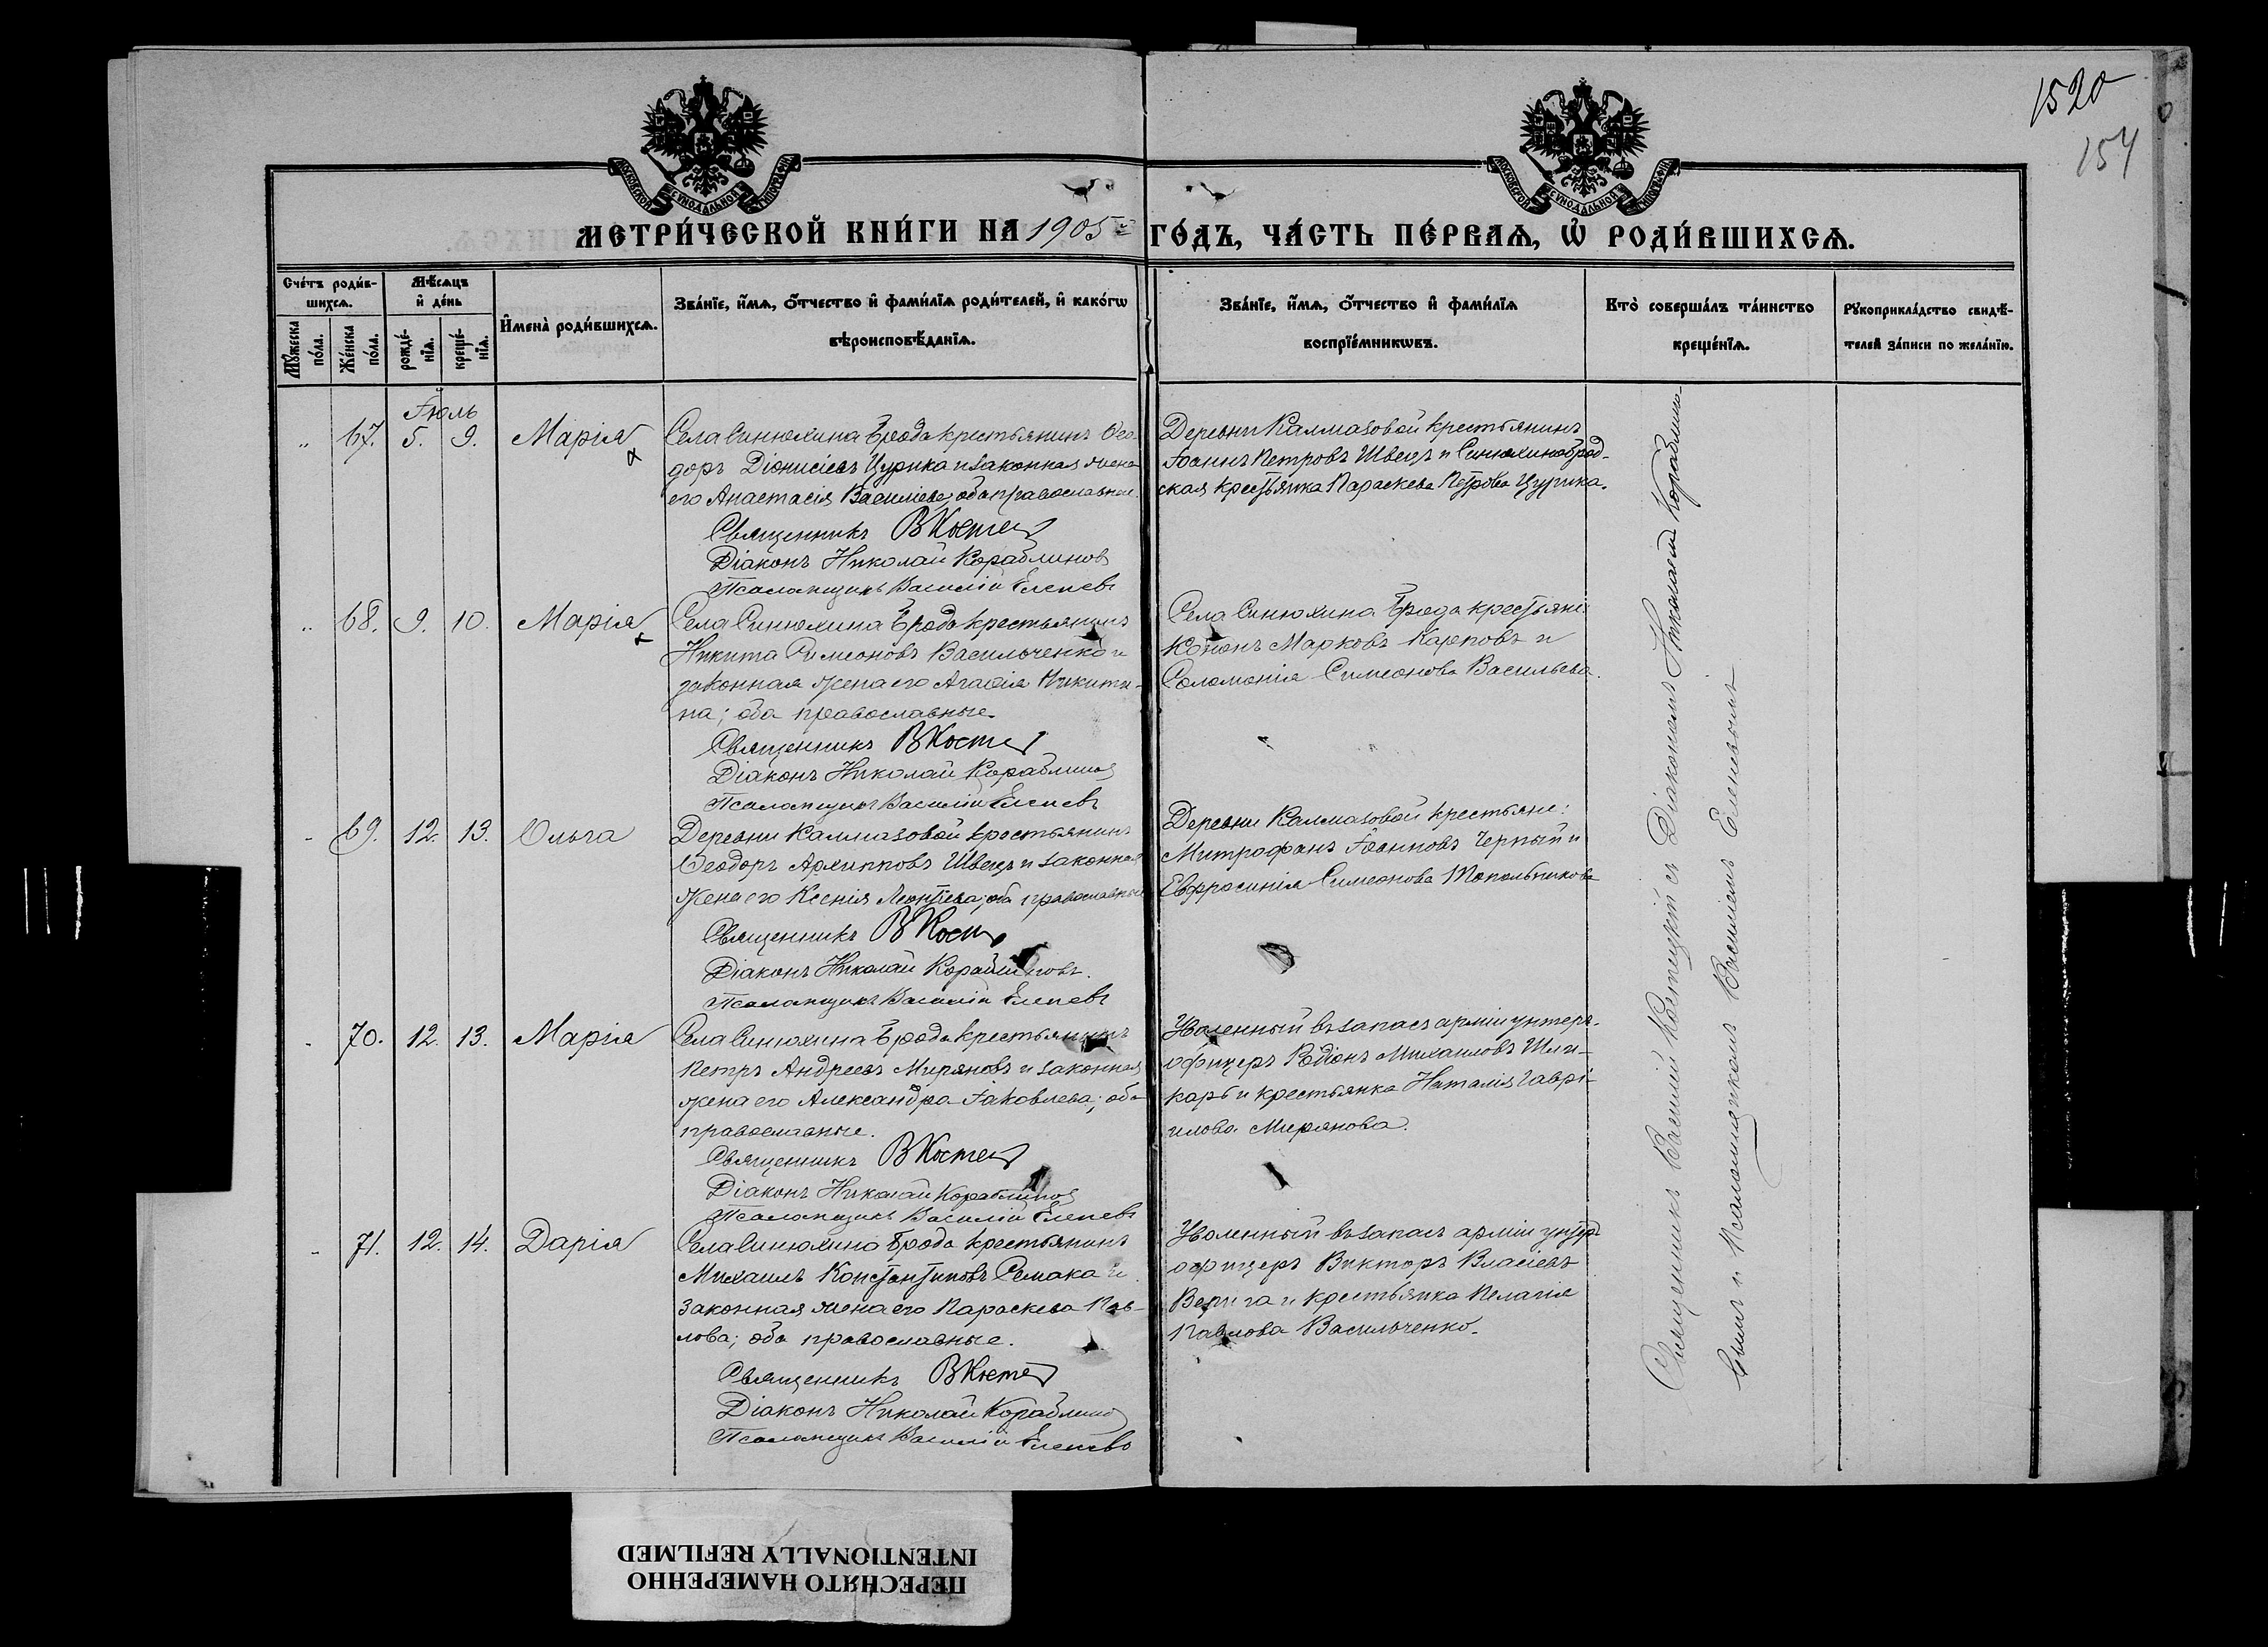 1520
154
МОСКОВСКОЙ СѴНОДАЛЬНОЙ ТИПОГРАФІИ
МОСКОВСКОЙ СѴНОДАЛЬНОЙ ТИПОГРАФІИ
МЕТРИ́ЧЕСКОЙ КНИ́ГИ НА 1905й ГО́ДЪ, ЧА́СТЬ ПЕ́РВАѦ, Ѡ҆ РОДИ́ВШИХСѦ.
Сче́тъ роди́в-
шихсѧ.
Мꙋ́жеска по́ла.
Же́нска по́ла.
Мѣ́сѧцъ
и҆ де́нь
рожде́-
нїѧ.
креще́-
нїѧ.
И҆мена̀ роди́вшихсѧ.
Зва́нїе, и҆́мѧ, ѻ҆́тчество и҆ фами́лїѧ роди́телей, и҆ како́гѡ
вѣроисповѣ́данїѧ.
Зва́нїе, и҆́мѧ, ѻ҆́тчество и҆ фами́лїѧ
воспрїе́мникѡвъ.
Кто̀ соверша́лъ та́инство
креще́нїѧ.
Рꙋкоприкла́дство свидѣ́-
телей за́писи по жела́нїю.
Іюль
67. 5. 9. Марія
Села Синюхина Брода крестьянинъ Ѳео-
доръ Діонисіевъ Цурика и законная жена
его Анастасія Василіева; оба православные.
Священникъ В Косте
Діаконъ Николай Кораблинов
Псаломщикъ Василій Еленевъ
Деревни Калмазовой крестьянинъ
Іоаннъ Петровъ Швецъ и Синюхиноброд-
ская крестьянка Параскева Петрова Цурика.
68. 9. 10. Марія
Села Синюхина Брода крестьянинъ
Никита Симеоновъ Васильченко и
законная жена его Агафія Никити-
на; оба православные.
Священникъ В Косте
Діаконъ Николай Кораблинов
Псаломщикъ Василій Еленевъ
Села Синюхина Брода крестьяне
Кононъ Марковъ Карповъ и
Соломонія Симеонова Васильева.
69. 12. 13. Ольга
Деревни Калмазовой крестьянинъ
Ѳеодоръ Архипповъ Швецъ и законная
жена его Ксенія Леонтіева; оба православные
Священникъ В Кост
Діаконъ Николай Кораблиновъ.
Псаломщикъ Василій Еленевъ
Деревни Калмазовой крестьяне:
Митрофанъ Іоанновъ Черный и
Евфросинія Симеонова Топольникова
70. 12. 13. Марія
Села Синюхина Брода крестьянинъ
Петръ Андреевъ Миряновъ и законная
жена его Александра Іаковлева; оба
православные.
Священникъ В Косте
Діаконъ Николай Кораблинов
Псаломщикъ Василій Еленевъ
Уволенный въ запасъ арміи унтеръ-
офицеръ Родіонъ Михаиловъ Шли-
карь и крестьянка Наталія Гаврі-
илова Мирянова.
71. 12. 14. Дарія
Села Синюхина Брода крестьянинъ
Михаилъ Константиновъ Семака и
законная жена его Параскева Пав-
лова; оба православные.
Священникъ В Косте
Діаконъ Николай Кораблино
Псаломщикъ Василій Еленевъ
Уволенный въ запасъ арміи унтер
офицеръ Викторъ Власіевъ
Верига и крестьянка Пелагія
Павлова Васильченко.
Священникъ Василій Костецкій съ Діакономъ Николаемъ Кораблино-
вымъ и Псаломщикомъ Василіемъ Еленевымъ
ПЕРЕСНЯТО НАМЕРЕННО
INTENTIONALLY REFILMED